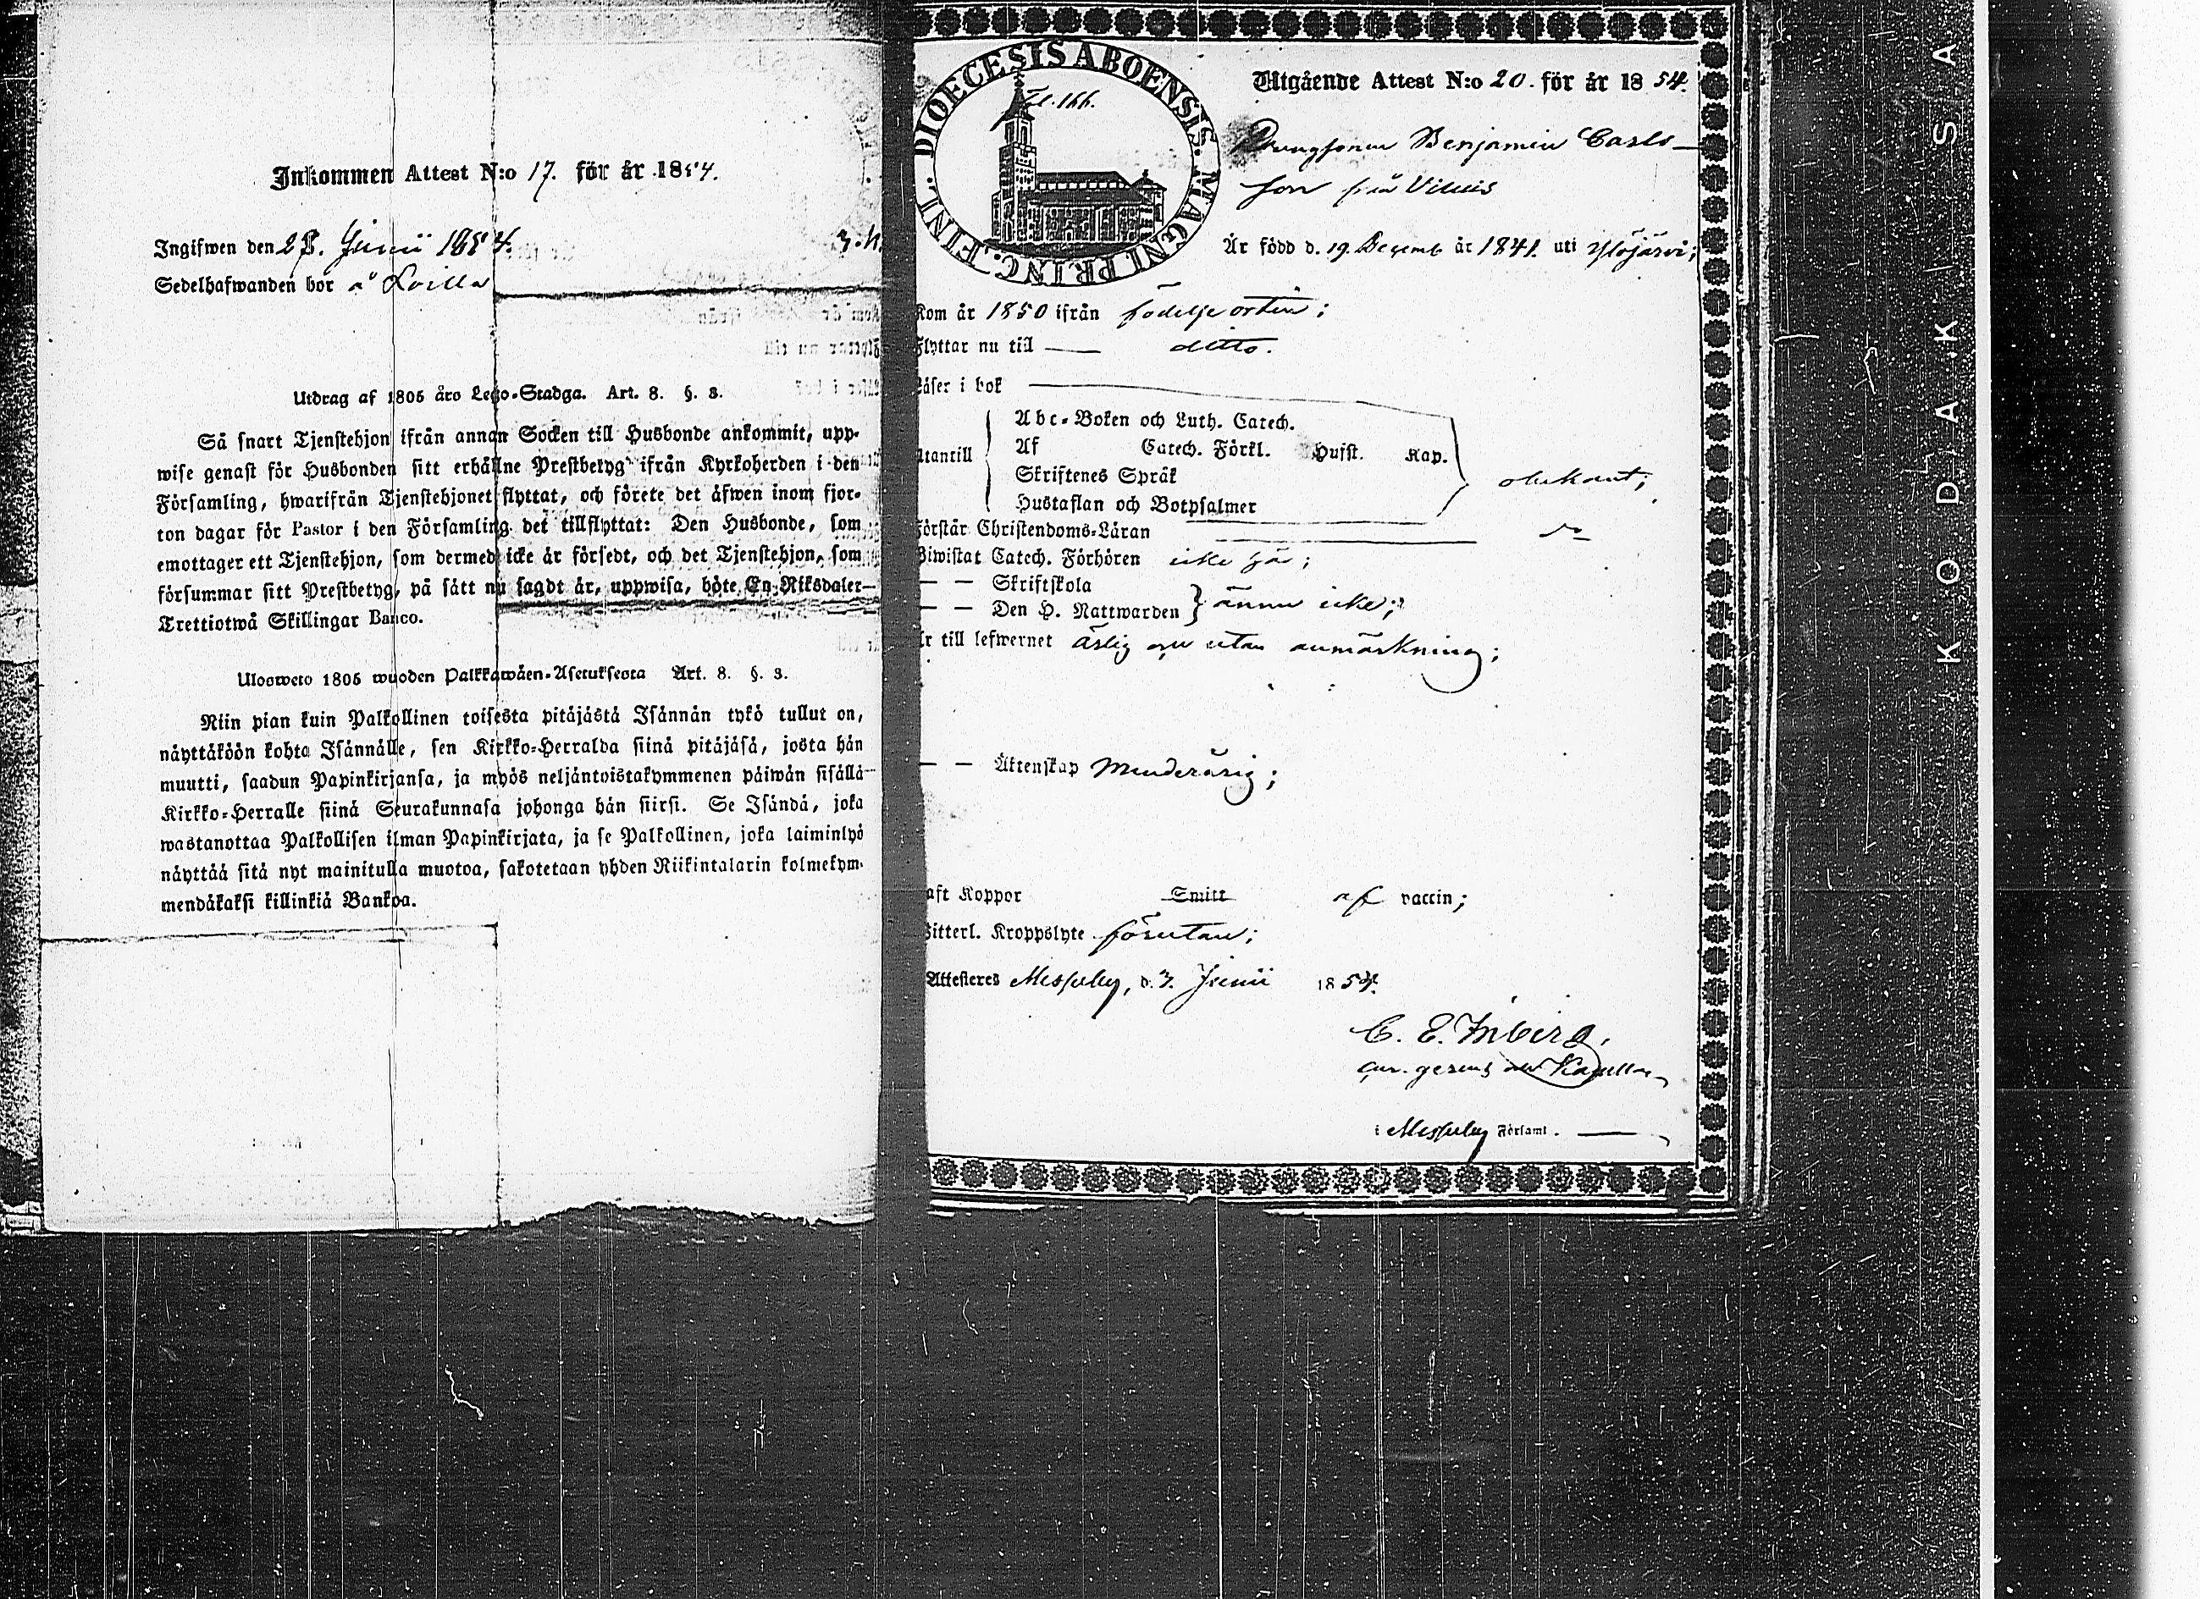 Inkommen Attest N:o 17. för år 1854.
Ingifwen den 23. Junii 1854.
Sedelhafwanden bor å Loilla
Utdrag af 1805 åro Lego-Stadga. Art. 8. §. 3.
Så snart Tjenstehjon ifrån annan Socken till Husbonde ankommit, upp-
wise genast för Husbonden sitt erhållne Prestbetyg ifrån Kyrkoherden i den
Församling, hwarifrån Tjenstehjonet flyttat, och förete det äfwen inom fjor-
ton dagar för Pastor i den Församling det tillflyttat: Den Husbonde, som
emottager ett Tjenstehjon, som dermed icke är försedt, och det Tjenstehjon, som
försummar sitt Prestbetyg, på sätt nu sagdt är, uppwisa, böte En Riksdaler
Trettiotwå Skillingar Banco.
Ulosweto 1805 wuoden Palkkawäen-Asetuksesta Art. 8. §. 3.
Niin pian kuin Palkollinen toisesta pitäjästä Isännän tykö tullut on,
näyttäköön kohta Isännälle, sen Kirkko-Herralda siinä pitäjäsä, josta hän
muutti, saadun Papinkirjansa, ja myös neljäntoistakymmenen päiwän sisällä
Kirkko-Herralle siinä Seurakunnasa johonga hän siirsi. Se Isändä, joka
wastanottaa Palkollisen ilman Papinkirjata, ja se Palkollinen, joka laiminlyö
näyttää sitä nyt mainitulla muotoa, sakotetaan yhden Riikintalarin kolmekym-
mendäkaksi killinkiä Bankoa.
DIOECESIS ABOENSIS. MAGNI PRINC. FINL.
Fol. 166.
Utgående Attest N:o 20. för år 1854.
Drengsonen Benjamin Carls-
son från Vilusis
Är född d. 19 Decemb år 1841. uti Ylöjärvi;
Kom år 1850 ifrån födelse orten;
Flyttar nu till — ditto.
Läser i bok
Utantill
Abc-Boken och Luth. Catech.
Af Catech. Förkl. Husst. Kap.
Skriftenes Språk
Hustaflan och Botpsalmer
obekant;
Förstår Christendoms-Läran
Biwistat Catech. Förhören icke här;
— — Skriftskola
— — Den H. Nattwarden } ännu icke;
Är till lefwernet ärlig och utan anmärkning;
— — Äktenskap Minderårig;
Haft Koppor Smitt af vaccin;
Witterl. Kroppslyte förutan;
Attesteres Messuby, d. 3. Junii 1854.
C. E. Inberg.
cur. gerens Kapellan
i Messuby Församl.
KODAK S.A